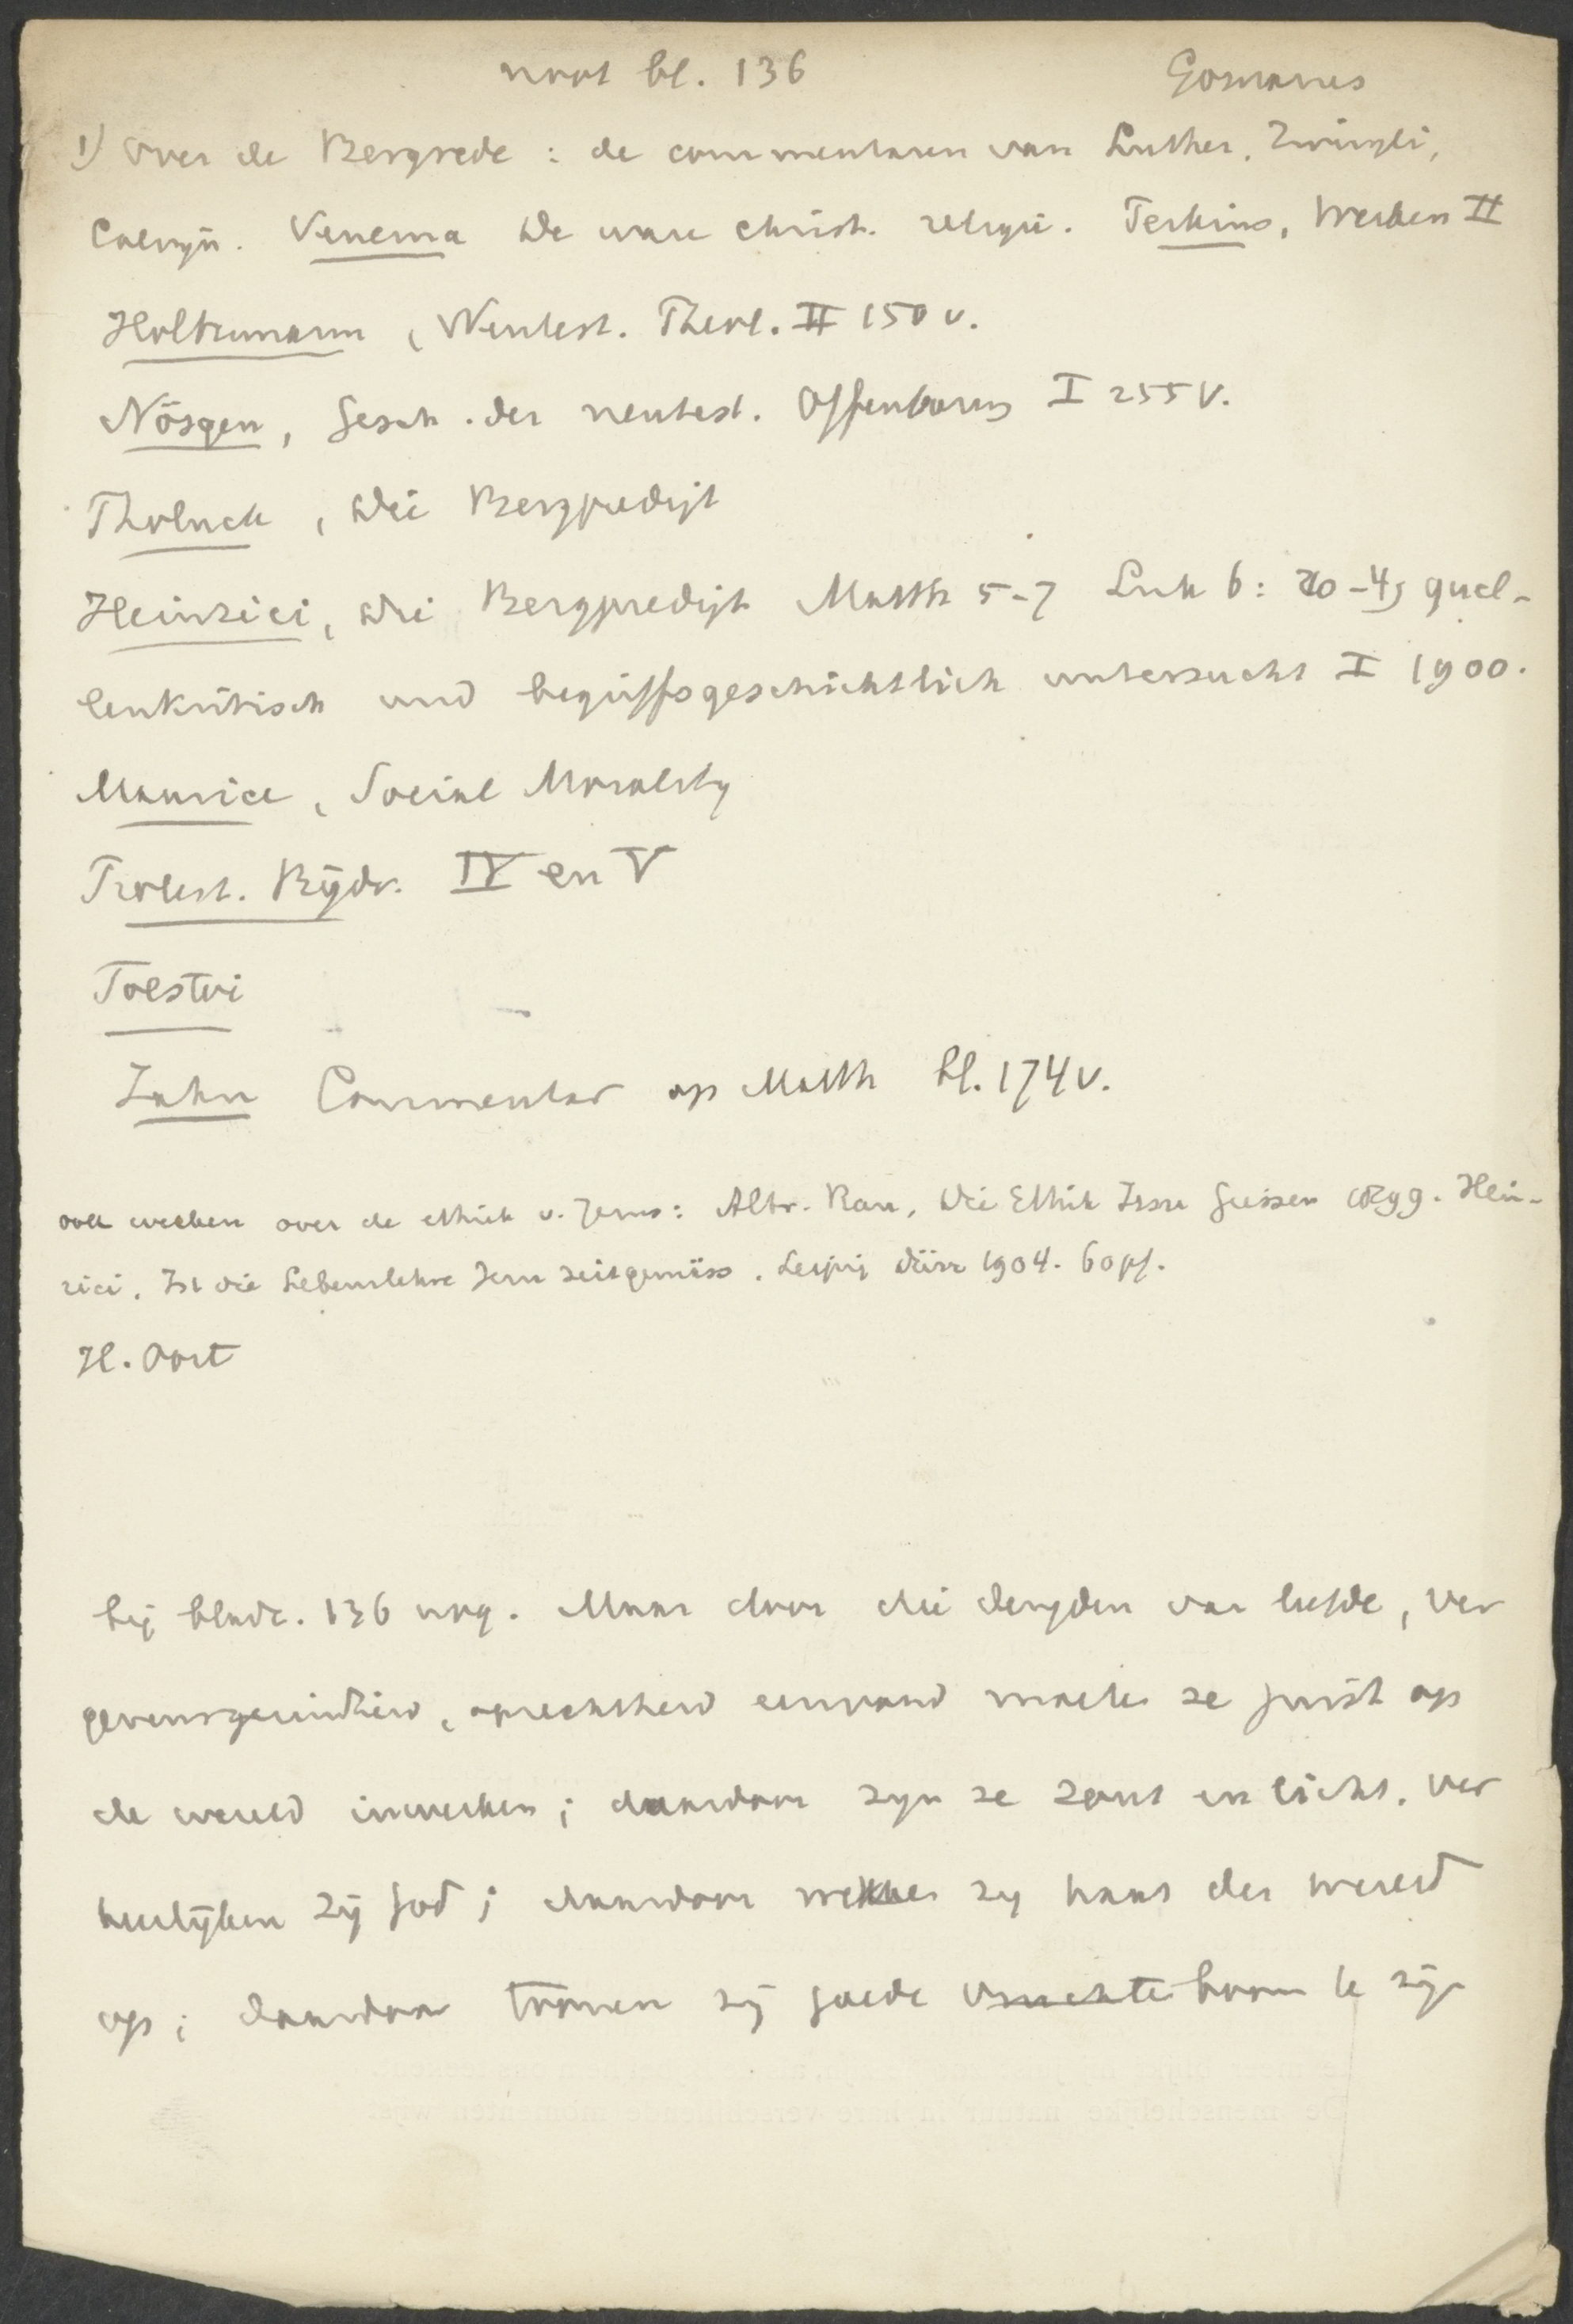 noot bl. 136 Gomarus
1) Over de Bergrede : de commentaren van Luther, Zwingli,
Calvijn. Venema De ware christ. religie. Perkins, Werken II
Holtzmann, Neutest. Theol. II 150 v.
Nösgen, Gesch. der neutest. Offenbarung I 255 v.
Tholuck, Die Bergpredigt
Heinrici, Die Bergpredigt Matth 5-7 Luk 6: 20-49 quel-
lenkritisch und begriffsgeschichtlich untersucht I 1900.
Maurice, Social Morality
Protest. Bijdr. IV en V
Tolstoi
Zahn Commentar op Matth bl. 174 v.
ook werken over de ethiek v. Jezus: Albr. Rau, Die Ethik Jesu Giessen 1899. Hein-
rici, Ist die Lebenslehre Jesu zeitgemäss. Leipzig Dürr 1904. 60 pf.
H. Oort
bij bladz. 136 nog. Maar door die deugden van liefde, ver
gevensgezindheid, oprechtheid eenvoud moeten ze juist op
de wereld inwerken; daardoor zyn ze zout en licht, ver
heerlijken zij God; daardoor wekken zy haat der wereld
op; daardoor toonen zij goede vruchteboom te zijn